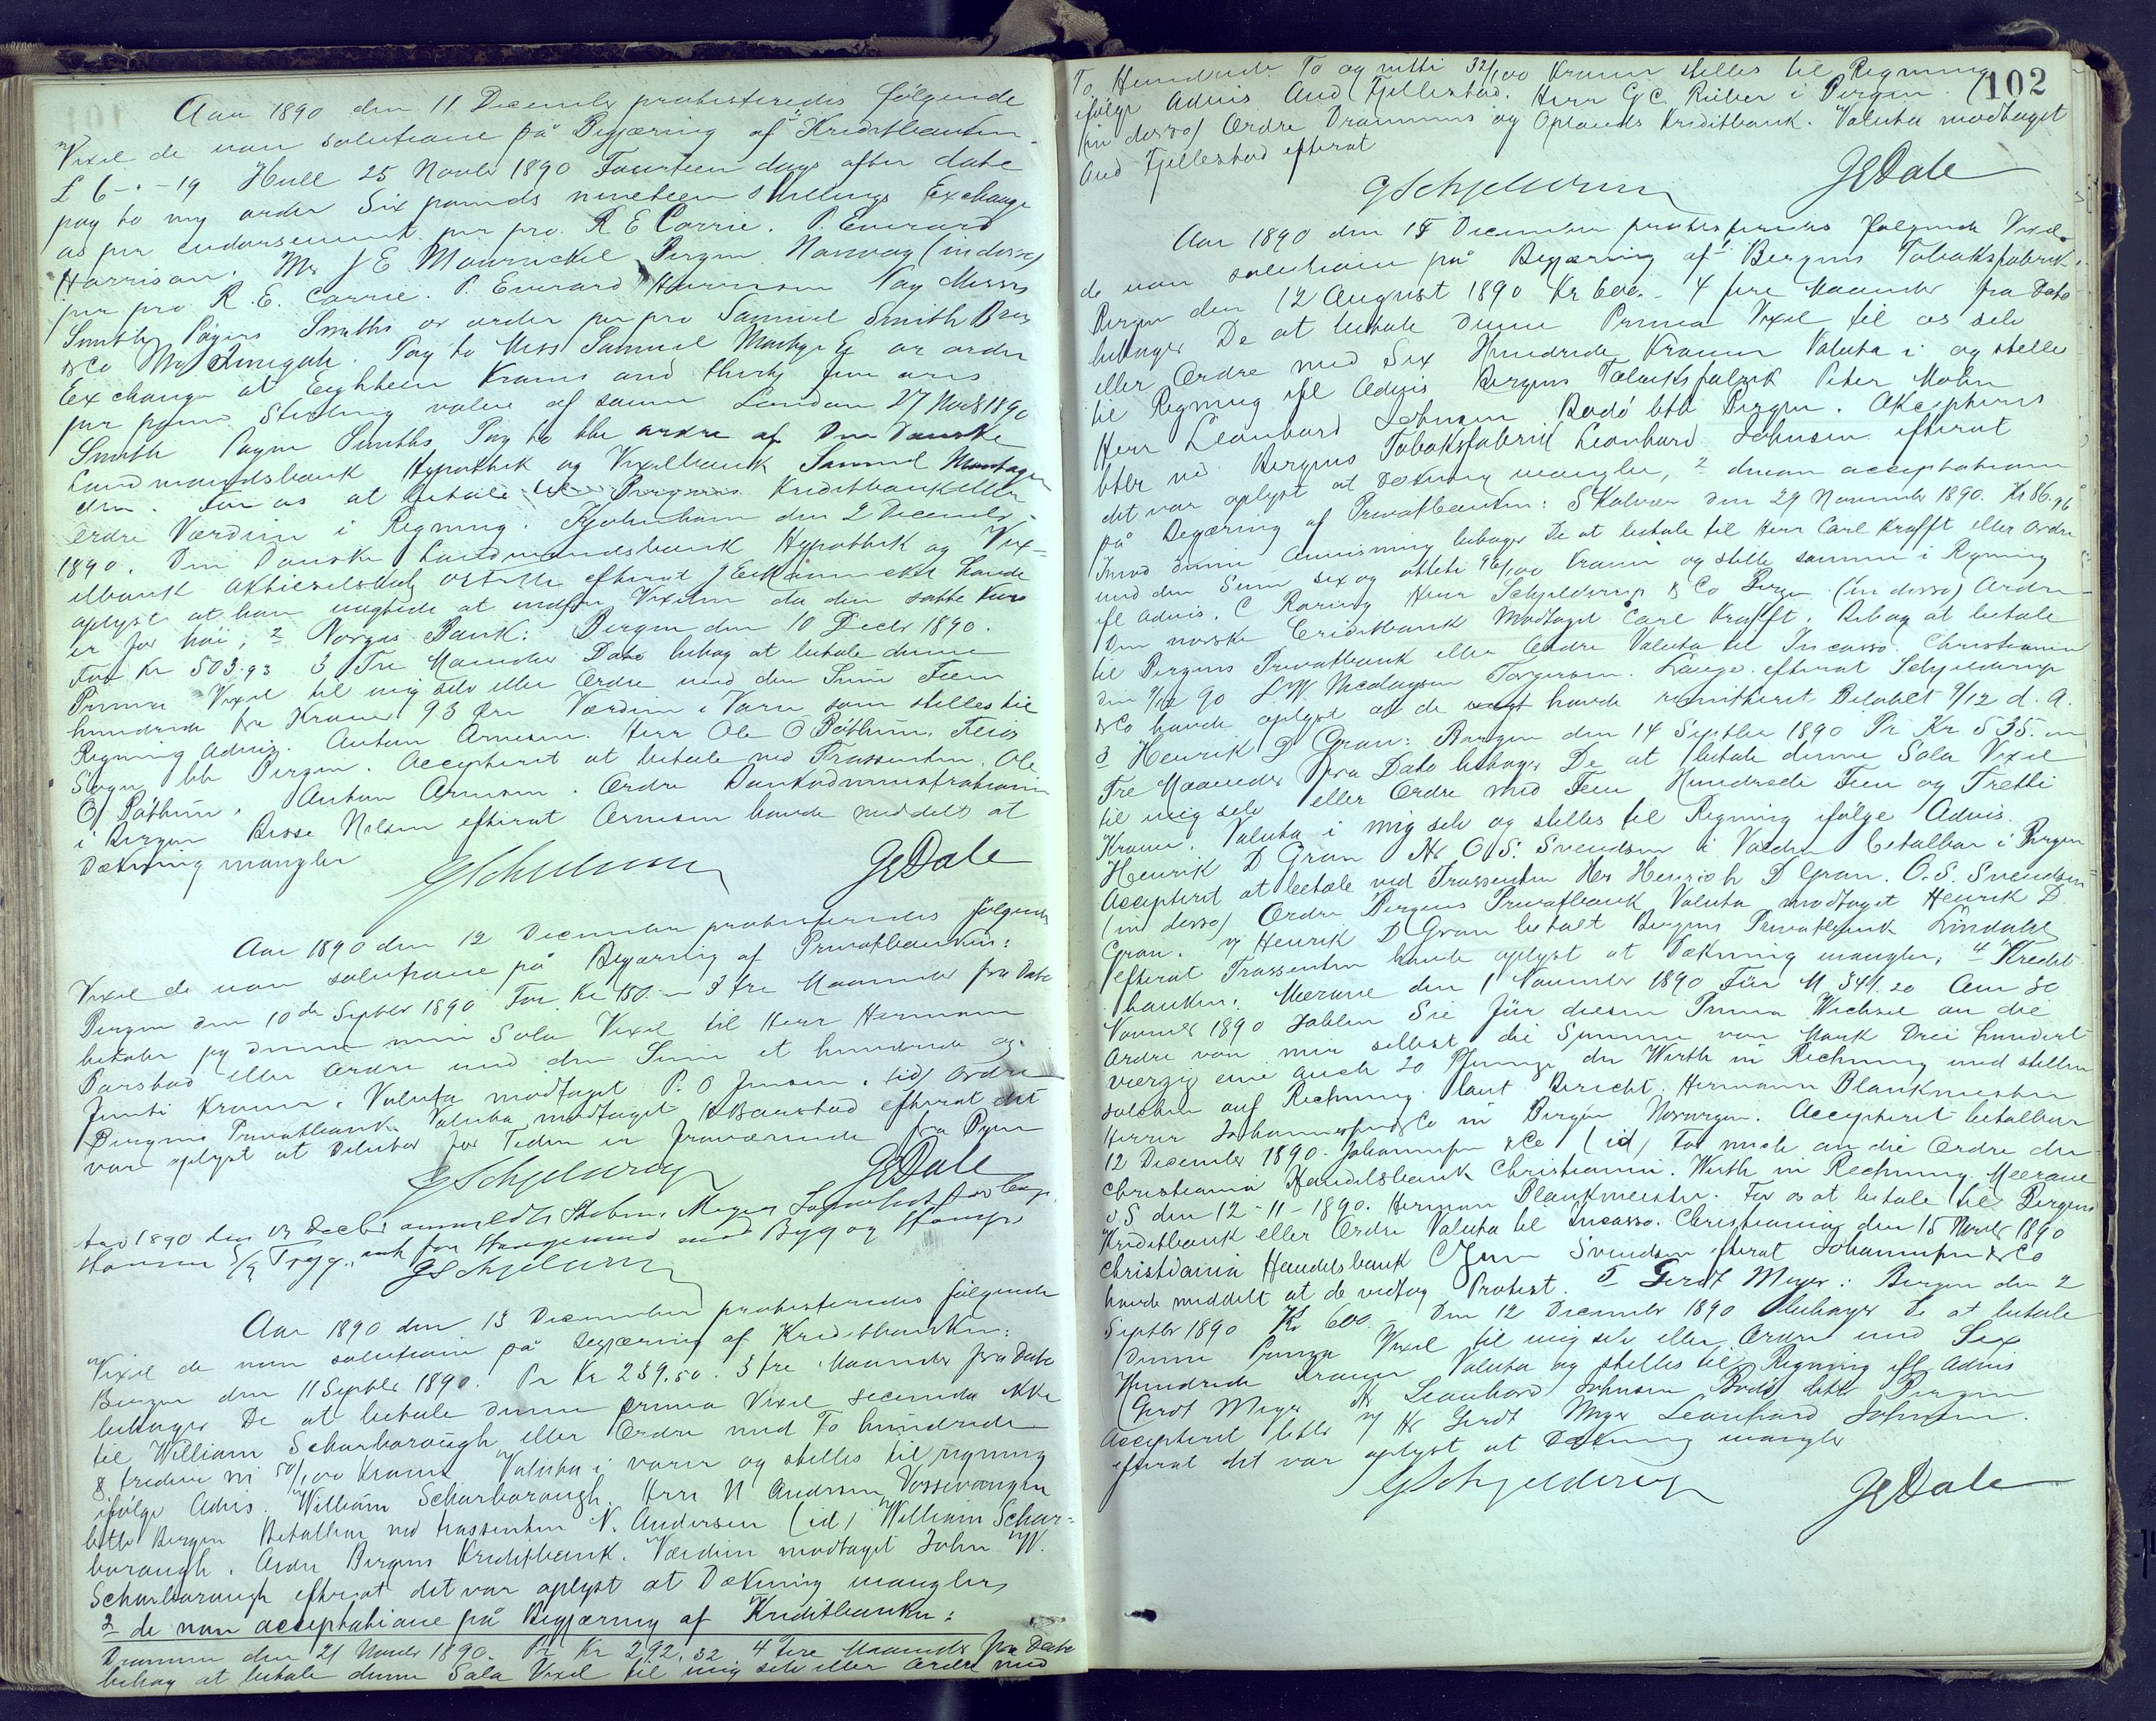 Aar 1890 den 11 December protesteredes følgende
Vixel de non solutione på Begjæring af Kreditbanken.
£ 6-"-19 Hull 25 Novbr 1890 Fourteen days after date
pay to my order Six pounds nineteen shillings Exchange
as per endorsement per pro. R E Corrie. P. Everard
Harrison. Mr J E Mowinckel Bergen Norway (indosso)
per pro R. E. Corrie. P. Everard Harrison Pay Messrs
Smith Payne Smiths or order per pro Samuel Smith Bros
& Co
Exchange at Eighteen Kroner and thirty five øre
per pound Sterling value of same London 27 Novb 1890
Smith Payne Smiths Pay to the ordre af Den Danske
Landmandsbank Hypothek og Vixelbank Samuel Montagu
drn. For os at betale til Bergens Kreditbank eller
Ordre Værdien i Regning. Kjøbenhavn den 2 December
1890. Den Danske Landmandsbank Hypothek og Vex=
elbank Aktieselskab efterat J E Mowinckel havde
oplyst at han nægtede at indfri Vixelen da den satte Kurs
er for høi; 2 Norges Bank: Bergen den 10 Decbr 1890.
For Kr 503.93 3 Tre Maaneder Dato behag at betale denne
Prima Vixel til mig selv eller Ordre med den Sum Fem
hundrede tre Kroner 93 Øre Værdien i Varer som stilles til
Regning Advis. Anton Arnesen. Herr Ole O Bøthun, Feios
Sogn btb Bergen. Accepteret at betale ved Trassenten. Ole
O Bøthun. Anton Arnesen. Ordre Bankadministrationen
i Bergen Besse Nilsen efterat Arnesen havde meddelt at
Dækning mangler
GSchjelderup JEDale
Aar 1890 den 12 December protesteredes følgende
Vixel de non solutione på Begjæring af Privatbanken:
Bergen den 10de Septbr 1890 For Kr 150.- 3 tre Maaneder fra Dato
betaler jeg denne min Sola Vixel til Herr Hermann
Barstad eller Ordre med den Sum et hundrede og
femti Kroner. Valuta modtaget P. O Jensen. (id) Ordre
Bergens Privatbank Valuta modtaget HBarstad efterat det
var oplyst at Debitor for Tiden er fraværende fra Byen
GSchjelderup JEDale
Aar 1890 den 13 Decbr anmeldte Meyer
Hansen
GSchjelderup
Aar 1890 den 13 December protesteredes følgende
Vixel de non solutione på Begjæring af Kreditbanken:
Bergen den 11 Septbr 1890. Pr Kr 239.50. 3 tre Maaneder fra Dato
behager De at betale denne prima Vixel secunda ikke
til William Scharborough eller Ordre med To hundrede
& tredive ni 50/100 Kroner Valuta i varer og stilles til regning
ifølge Advis. William Scharborough. Herr N Andersen Vossevangen
bttb Bergen Betalbar ved trassenten N. Andersen (id) William Schar=
borough. Ordre Bergens Kreditbank. Værdien modtaget John W.
Scharborough efterat det var oplyst at Dækning mangler,
2 de non acceptatione på Begjæring af Kreditbanken:
Drammen den 21 Novbr 1890. Pr Kr 292.32 4 fire Maaneder fra Dato
behag at betale denne Sola Vixel til mig selv eller Ordre med
102
To Hundrede To og nitti 32/100 Kroner stilles til Regning
ifølge Advis And Fjellestad. Herr G C Rieber i Bergen.
(in dosso) Ordre Drammens og Oplands Kreditbank. Valuta modtaget
And Fjellestad efterat
GSchjelderup JEDale
Aar 1890 den 15 December protesteredes følgende Vixel
de non solutione på Begjæring af 1 Bergens Tobaksfabrik.
Bergen den 12 August 1890 Kr 600.- 4 fire Maaneder fra Dato
behager De at betale denne Prima Vixel til os selv
eller Ordre med Sex Hundrede Kroner Valuta i og stilles
til Regning ifl Advis Bergens Tobaksfabrik Peter Mohn
Herr Leonhard Johnsen Bodø btb Bergen. Accepteres
btbr ved Bergens Tobaksfabrik Leonhard Johnsen efterat
det var oplyst at Dækning mangler, 2 de non acceptatione
på Begjæring af Privatbanken: Skalvær den 29 November 1890. Kr 86.96
Imod denne Anvisning behager De at betale til Herr Carl Krafft eller Ordre
med den Sum sex og ottete 96/100 Kroner og stille samme i Regning
ifl Advis. C Roring Herr Schjelderup & Co Bergen. (in dosso) Ordre
Den norske Creditbank Modtaget Carl Krafft. Behag at betale
til Bergens Privatbank eller Ordre Valuta til Incasso. Christiania
den 9/12 90 L W Nicolaysen Torgersen. Lange. efterat Schjelderup
& Co havde oplyst at de havde remitteret Beløbet 9/12 d. A.
3 Henrik D Gran: Bergen den 14 Septbr 1890 Pr Kr 535.-
Tre Maaneder fra Dato behager De at betale denne Sola Vixel
til mig selv eller Ordre med Fem Hundrede Fem og Tretti
Kroner. Valuta i mig selv og stilles til Regning ifølge Advis.
Henrik D Gran Hr O. S. Svendsen i Betalbar i Bergen
Accepteret at betale ved Trassenten Her Henrich D Gran. O. S. Svendsen
(in dosso) Ordre Bergens Privatbank Valuta modtaget Henrik D
Gran. Henrik D Gran betalt Bergens Privatbank Lindahl
efterat Trassenten havde oplyst at Dækning mangler, 4 Kredit
banken: Meerane den 1 November 1890 Für M 341.20 Am 30
November 1890 zahlen Sie für diesen Prima Wechsel an die
Ordre von mir selbst die Summe von Mark Drei hundert
vierzig eine auch 20 Pfennige den Werth in Rechnung und stellen
solchen auf Rechnung laut Bericht. Hermann Blankmeister
Herren Johannesen & Co in Bergen Norwegen. Accepteret betalbar
12 December 1890. Johannesen & Co (id) Für mich an die Ordre der
Christiania Handelsbank Christiania. Werth in Rechnung Meerane
i/S den 12-11-1890. Herman Blankmeister. For os at betale til Bergens
Kreditbank eller Ordre Valuta til Incasso. Christiania den 15 Novbr 1890
Christiania Handelsbank Svendsen efterat Johannesen & Co
havde meddelt at de vedtog Protest. 5 Gerdt Meyer: Bergen den 2
Septbr 1890 Kr 600 Den 12 December 1890 behager De at betale
denne Prima Vixel til mig selv eller Ordre med Sex
Hundrede Kroner Valuta og stilles til Regning ifl Advis
Gerdt Meyer Hr Leonhard Johnsen Bodø btb Bergen
Accepteret btbr v/ Hr Gerdt Meyer Leonhard Johnsen.
efterat det var oplyst at Dækning mangler
GSchjelderup JEDale